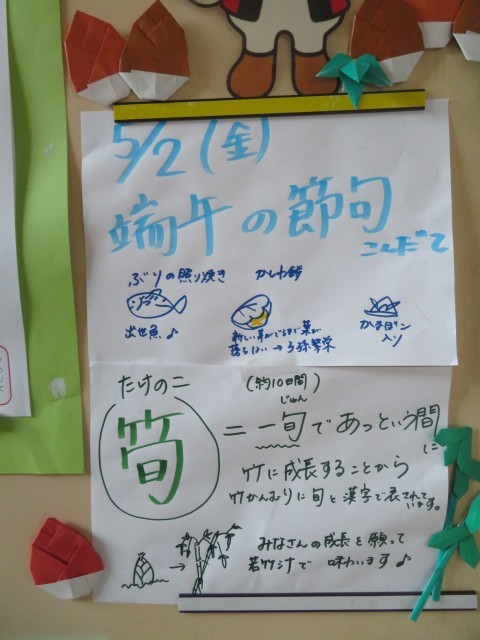 5/2(金)
端午の節句
こんだて
ぶりの照り焼き
かしわ餅
出世魚♪
新しい芽がでるまで葉が
落ちない→子孫繁栄
かまぼこ
入り
たけのこ
筍
(約10日間)
じゅん
=一旬であっという間
に
竹に成長することから
竹かんむりに旬と漢字で表されて
います。
→
みなさんの成長を願って
若竹汁で味わいます♪